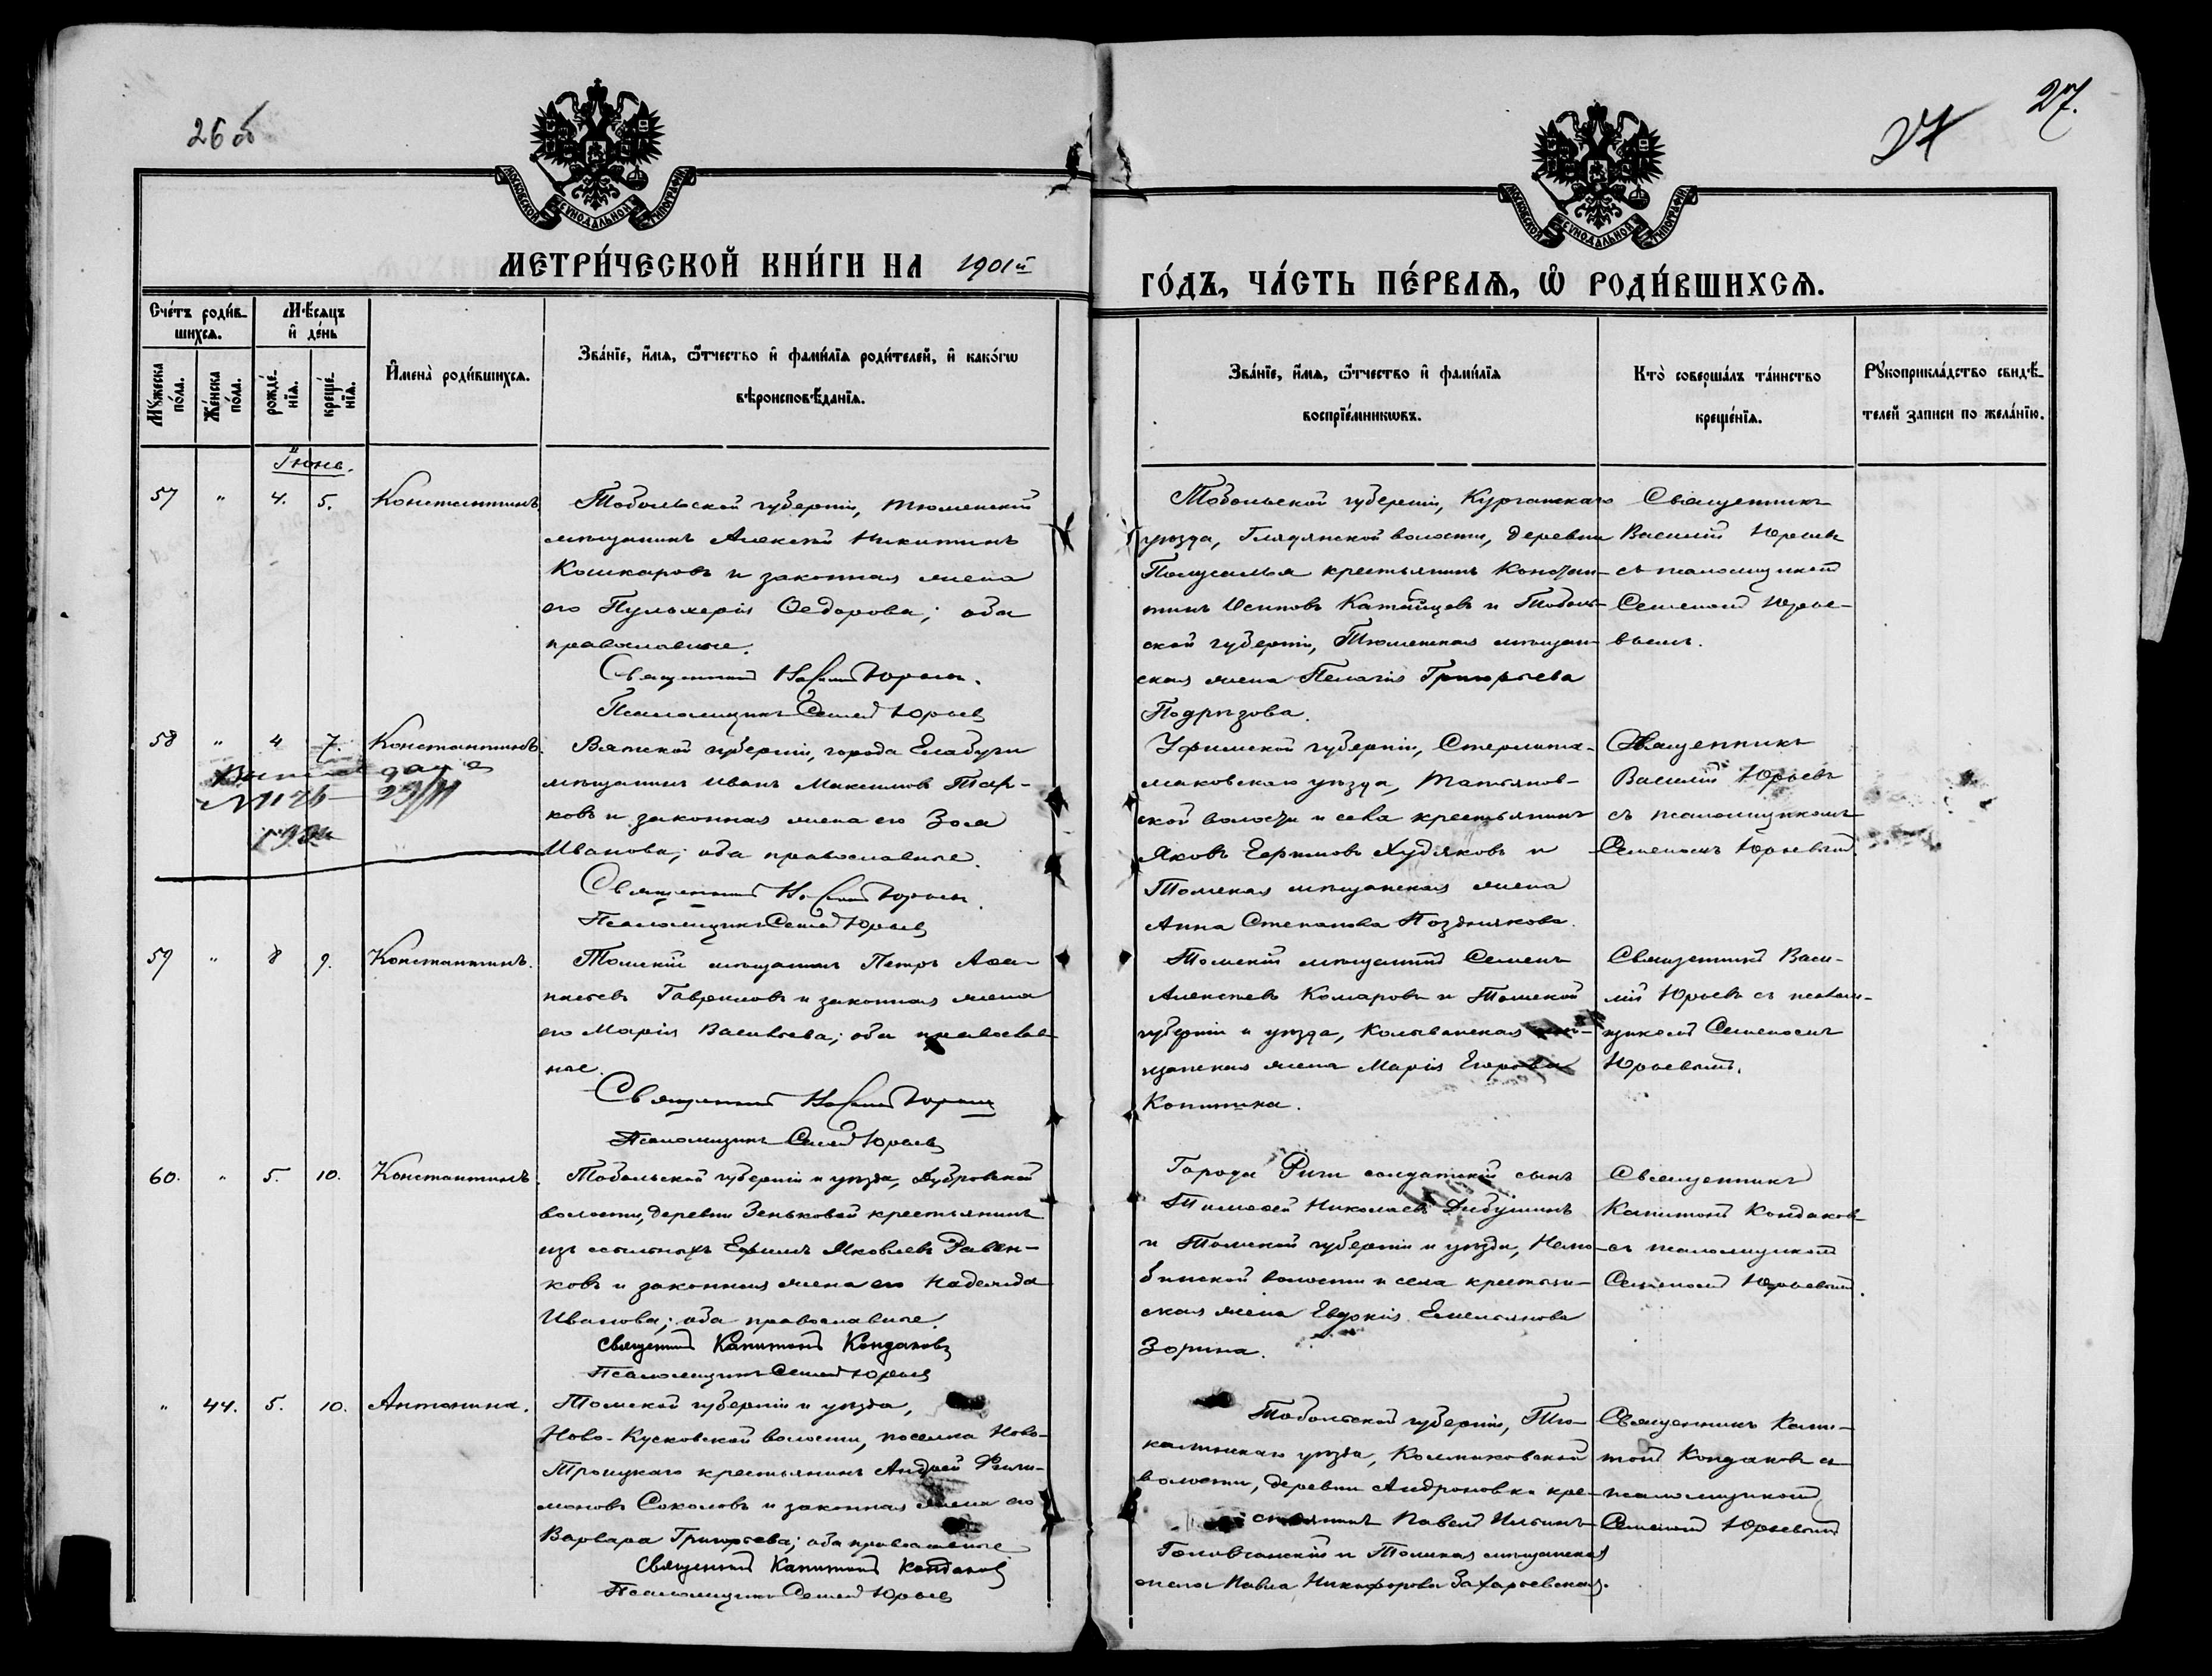 26 об
27
27.
МОСКОВСКОЙ СѴНОДАЛЬНОЙ ТИПОГРАФІИ
МОСКОВСКОЙ СѴНОДАЛЬНОЙ ТИПОГРАФІИ
МЕТРИ́ЧЕСКОЙ КНИ́ГИ НА 1901й
ГО́ДЪ, ЧА́СТЬ ПЕ́РВАѦ, Ѽ РОДИ́ВШИХСѦ.
Сче́тъ роди́в-
шихсѧ.
Мꙋ́жеска по́ла.
Же́нска по́ла.
Мѣ́сѧцъ
и҆ де́нь
рожде́-
нїѧ.
креще́-
нїѧ.
И҆мена̀ роди́вшихсѧ.
Зва́нїе, и҆́мѧ, ѻ҆́тчество и҆ фамі́лїѧ роди́телей, и҆ како́гѡ
вѣроисповѣ́данїѧ.
Зва́нїе, и҆́мѧ, ѻ҆́тчество и҆ фамі́лїѧ
воспрїе́мникѡвъ.
Кто̀ соверша́лъ та́инство
креще́нїѧ.
Рꙋкоприкла́дство свидѣ́-
телей записи по жела́нїю.
Іюнь.
57 " 4. 5. Константинъ.
Тобольской губерніи, тюменскій
мѣщанинъ Алексѣй Никитинъ
Кошкаровъ и законная жена
его Пульхерія Ѳедорова; оба
православные.
Священникъ Василій Юрьевъ.
Псаломщикъ Семенъ Юрьевъ
Тобольской губерніи, Курганскаго
уѣзда, Глядянской волости, деревни
крестьянинъ Констан-
тинъ Осиповъ Катайцевъ и Тоболь-
ской губерніи, Тюменская мѣщан-
ская жена Пелагія Григорьева
Подрѣзова.
Священникъ
Василій Юрьевъ
съ псаломщикомъ
Семеномъ Юрье-
вымъ.
58 " 4 7. Константинъ.
1924
Вятской губерніи, города Елабуги
мѣщанинъ Иванъ Максимовъ
и законная жена его Зоя
Иванова; оба православные.
Священникъ Василій Юрьевъ.
Псаломщикъ Семенъ Юрьевъ
Уфимской губерніи, Стерлита-
макскаго уѣзда,
ской волости и села крестьянинъ
Яковъ Ефимовъ Худяковъ и
Томская мѣщанская жена
Анна Степанова Позднякова.
Священникъ
Василій Юрьевъ
съ псаломщикомъ
Семеномъ Юрьевымъ.
59 " 8 9. Константинъ.
Томскій мѣщанинъ Петръ Ава-
Гавриловъ и законная жена
его Марія Васильева; оба православ-
ные.
Священникъ Василій Юрьевъ
Псаломщикъ Семенъ Юрьевъ
Томскій мѣщанинъ Семенъ
Алексѣевъ Комаровъ и Томской
губерніи и уѣзда, Колыванская мѣ-
щанская жена Марія Егорова
Копинина.
Священникъ Васи-
лій Юрьевъ съ псалом-
щикомъ Семеномъ
Юрьевымъ.
60. " 5. 10. Константинъ.
Тобольской губерніи и уѣзда, Дубровной
волости, деревни Зеньковой крестьянинъ
изъ ссыльныхъ Ефимъ Яковлевъ Равен-
ковъ и законная жена его Надежда
Иванова; оба православные.
Священникъ Капитонъ Кондаковъ
Псаломщикъ Семенъ Юрьевъ
Города Риги солдатскій сынъ
Тимофей Николаевъ Дибушинъ
и Томской губерніи и уѣзда, Нелю-
бинской волости и села крестьян-
ская жена Евдокія Емельянова
Зорина.
Священникъ
Капитонъ Кондаковъ
съ псаломщикомъ
Семеномъ Юрьевымъ.
" 44. 5. 10. Антонина.
Томской губерніи и уѣзда,
Ново-Кусковской волости, поселка Ново-
Троицкаго крестьянинъ Андрей Фили-
моновъ Соколовъ и законная жена его
Варвара Григорьева; оба православные
Священникъ Капитонъ Кондаковъ
Псаломщикъ Семенъ Юрьевъ
Тобольской губерніи, Тю-
калинскаго уѣзда, Колмаковской
волости, деревни Андроновки кре-
стьянинъ Павелъ Ильинъ
и Томская мѣщанская
жена Павла Никифорова Захарьевская.
Священникъ Капи-
тонъ Кондаковъ съ
псаломщикомъ
Семеномъ Юрьевымъ